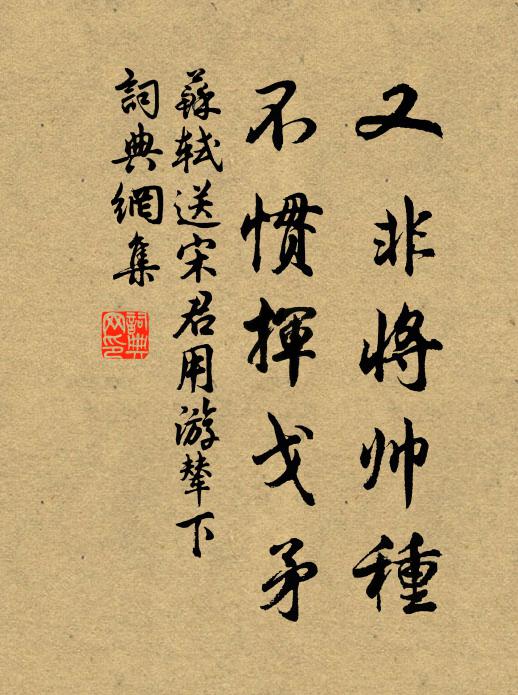 又非將帅種
不慣揮戈矛
蘇軾送宋君用游輦下
詞典網集
詞典网印